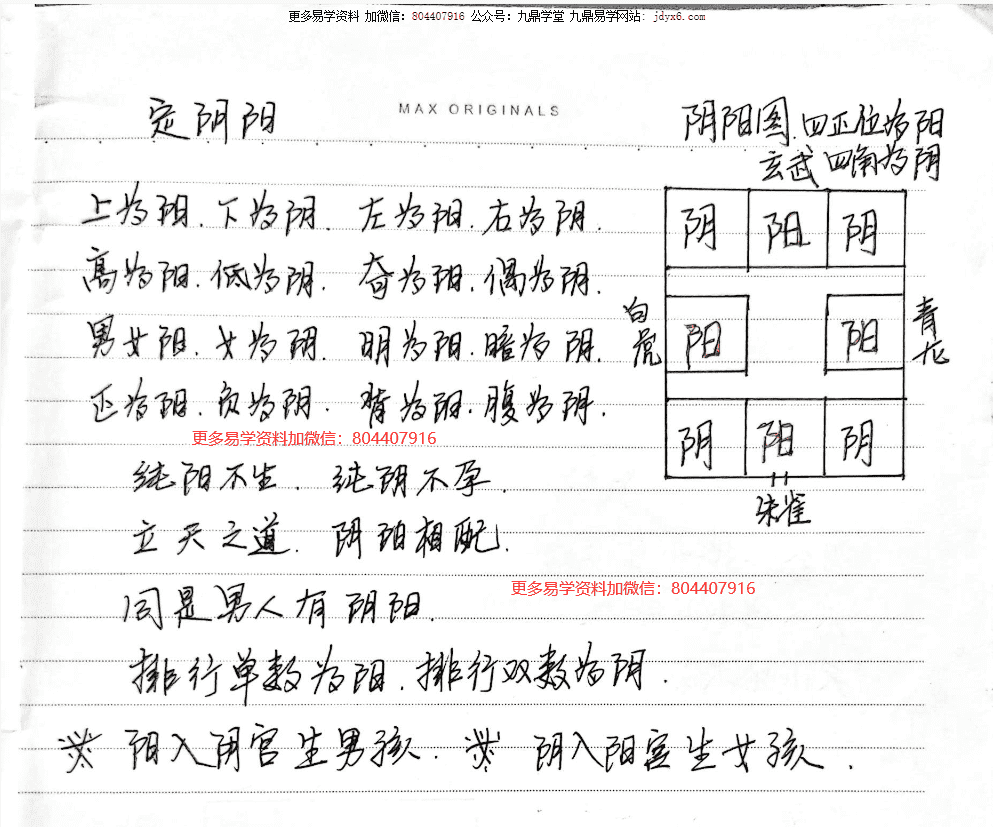 更多易学资料 加微信：804407916 公众号：九鼎学堂 九鼎易学网站：jdyx6.com
定阴阳
MAX ORIGINALS
阴阳图.四正位为阳
玄武 四角为阴
上为阳.下为阴. 左为阳.右为阴.
高为阳.低为阴. 奇为阳.偶为阴.
男女阳.女为阴. 明为阳.暗为阴.
正为阳.负为阴. 背为阳.腹为阴.
阴 阳 阴
白虎 阳 阳 青龙
阴 阳 阴
朱雀
更多易学资料加微信：804407916
纯阳不生. 纯阴不孕.
立天之道. 阴阳相配.
更多易学资料加微信：804407916
同是男人有阴阳.
排行单数为阳.排行双数为阴.
阳入阴宫生男孩. 阴入阳宫生女孩.